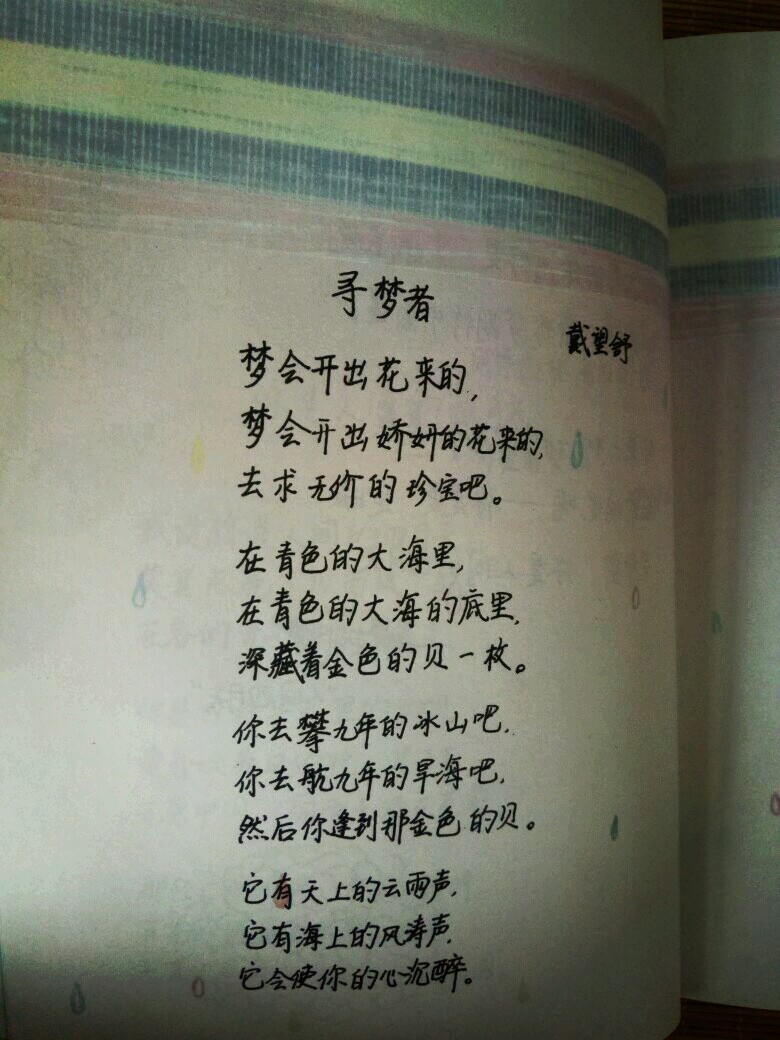 寻梦者
戴望舒
梦会开出花来的,
梦会开出娇妍的花来的,
去求无价的珍宝吧。
在青色的大海里,
在青色的大海的底里,
深藏着金色的贝一枚。
你去攀九年的冰山吧,
你去航九年的旱海吧,
然后你逢到那金色的贝。
它有天上的云雨声,
它有海上的风涛声,
它会使你的心沉醉。